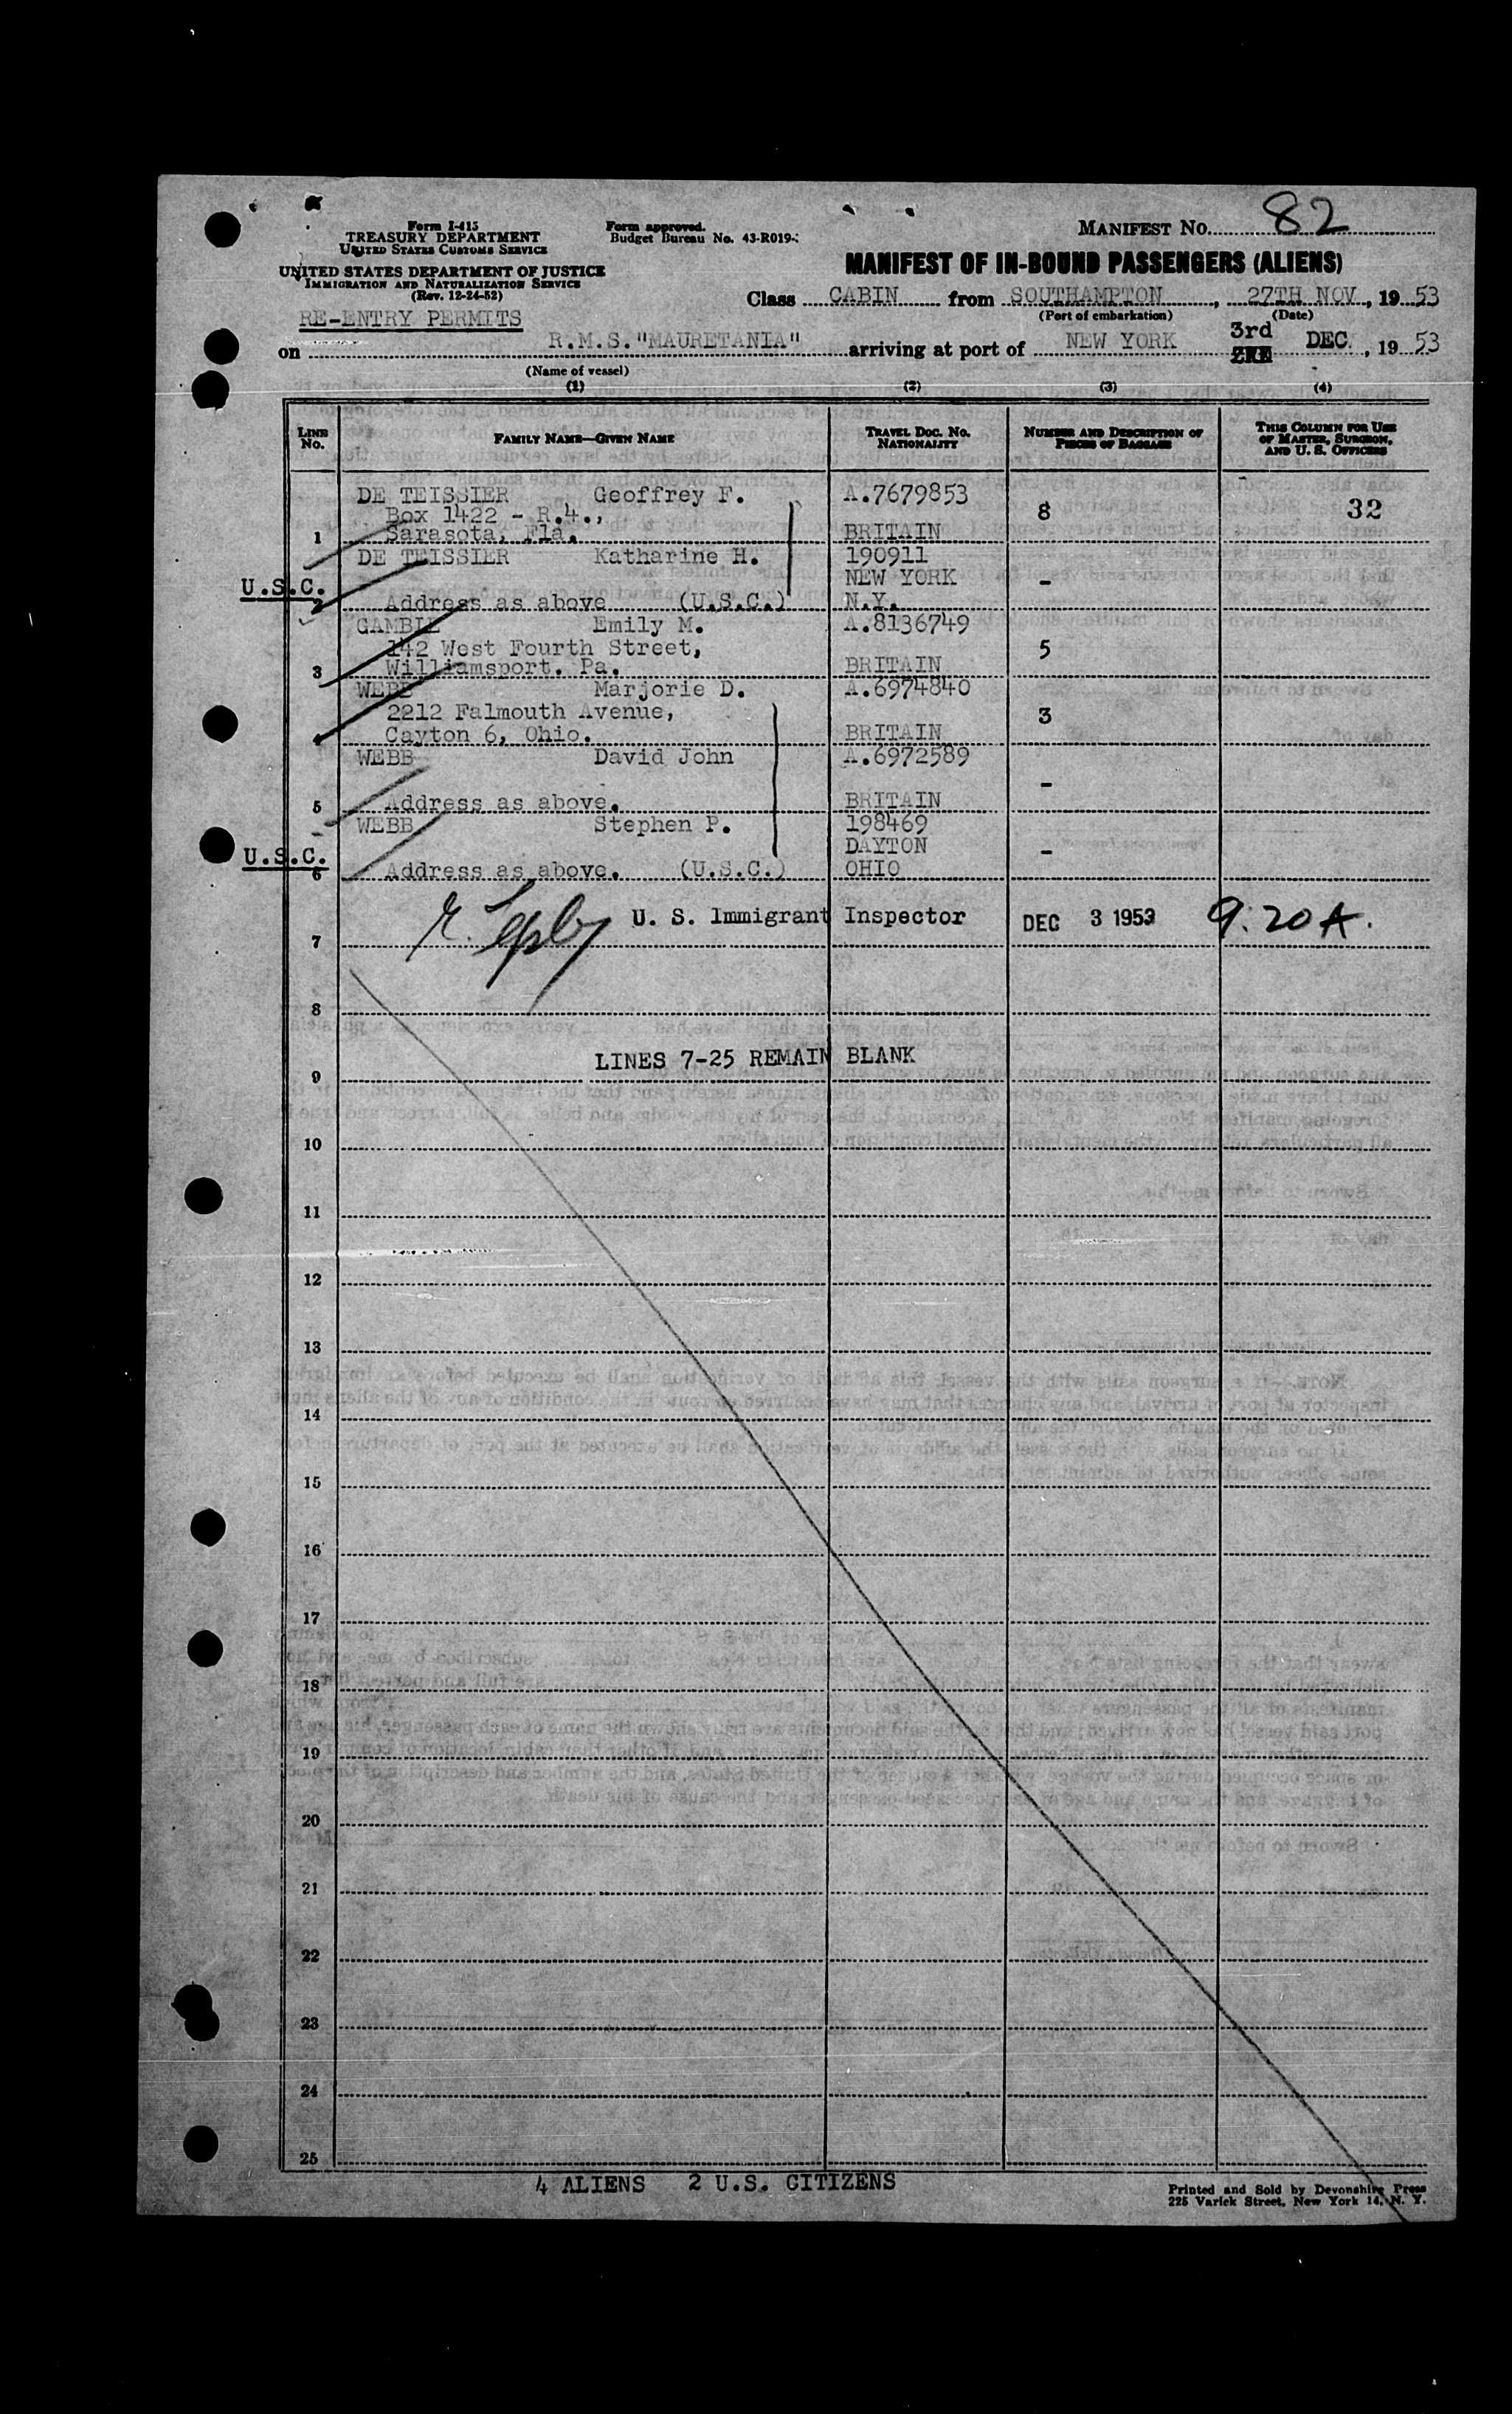 Form I-415
TREASURY DEPARTMENT
UNITED STATES CUSTOMS SERVICE
UNITED STATES DEPARTMENT OF JUSTICE
IMMIGRATION AND NATURALIZATION SERVICE
(Rev. 12-24-52)
Form approved.
Budget Bureau No. 43-R019-
MANIFEST No. 82
MANIFEST OF IN-BOUND PASSENGERS (ALIENS)
Class CABIN from SOUTHAMPTON, 27TH NOV, 19 53
(Port of embarkation) (Date)
RE-ENTRY PERMITS
on R.M.S."MAURETANIA" arriving at port of NEW YORK 3rd DEC., 19 53
(Name of vessel)
(1) (2) (3) (4)
LINE No. FAMILY NAME—GIVEN NAME TRAVEL DOC. No. NATIONALITY NUMBER AND DESCRIPTION OF PIECES OF BAGGAGE THIS COLUMN FOR USE OF MASTER, SURGEON, AND U. S. OFFICERS
DE TEISSIER Geoffrey F. A.7679853
Box 1422 - R.4., 8 32
1 Sarasota, Fla. BRITAIN
DE TEISSIER Katharine H. 190911
U.S.C. NEW YORK -
2 Address as above (U.S.C.) N.Y.
GAMBLE Emily M. A.8136749
142 West Fourth Street, 5
3 Williamsport. Pa. BRITAIN
WEBB Marjorie D. A.6974840
2212 Falmouth Avenue, 3
Cayton 6, Ohio. BRITAIN
WEBB David John A.6972589
-
5 Address as above. BRITAIN
WEBB Stephen P. 198469
U.S.C. DAYTON -
6 Address as above. (U.S.C.) OHIO
U. S. Immigrant Inspector DEC 3 1953 9:20 A.
7
8
LINES 7-25 REMAIN BLANK
9
10
11
12
13
14
15
16
17
18
19
20
21
22
23
24
25
4 ALIENS 2 U.S. CITIZENS
Printed and Sold by Devonshire Press
225 Varick Street, New York 14, N. Y.